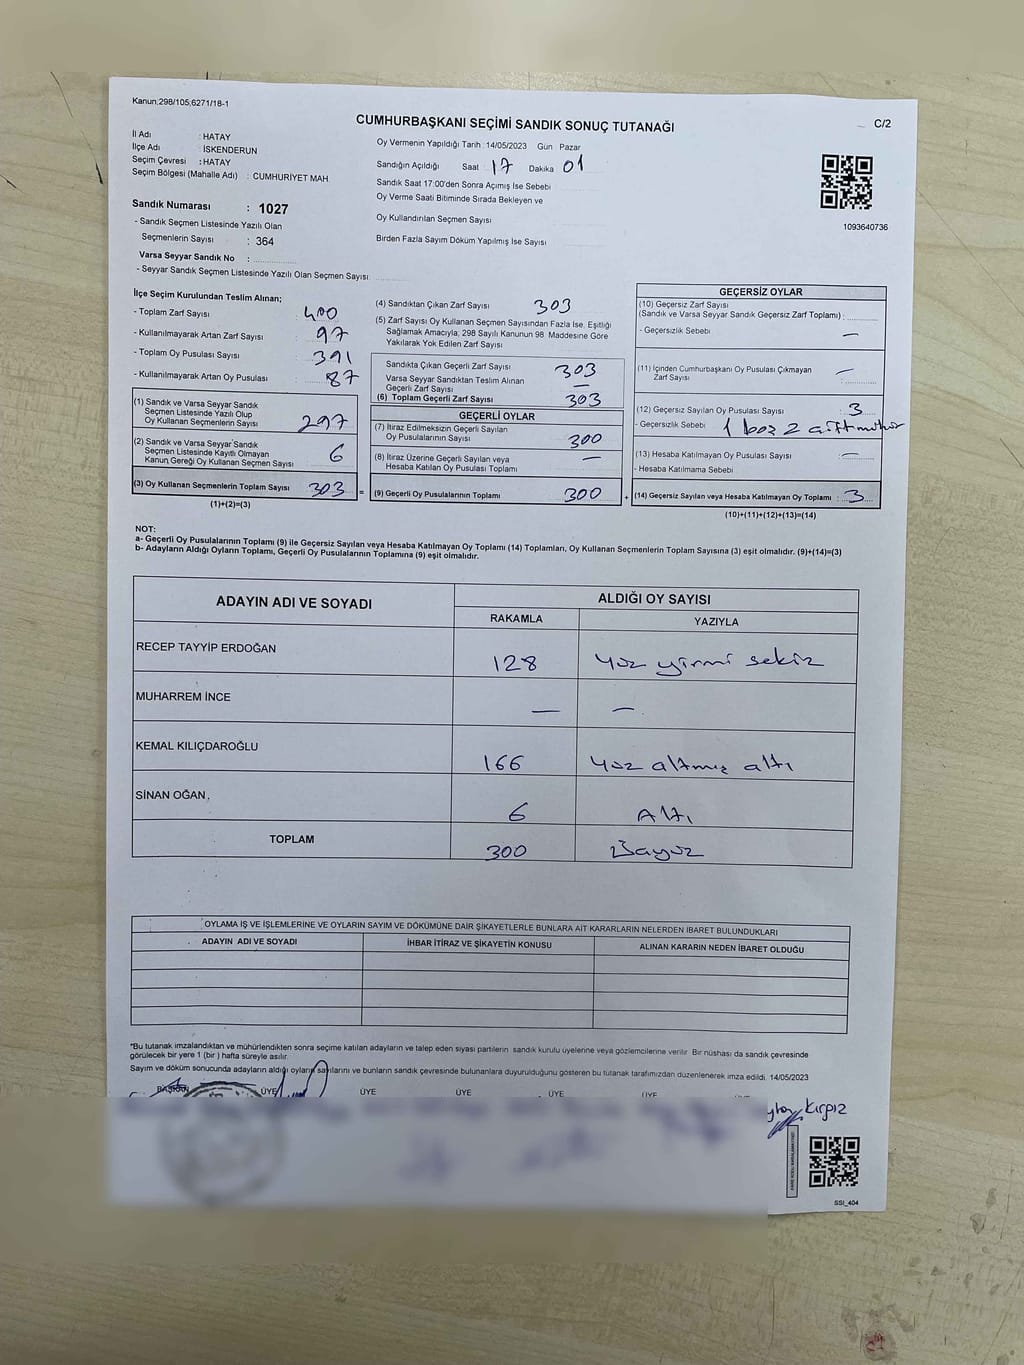 Kanun:298/105,6271/18-1
C/2
CUMHURBAŞKANI SEÇİMİ SANDIK SONUÇ TUTANAĞI
İl Adı : HATAY
İlçe Adı : İSKENDERUN
Seçim Çevresi : HATAY
Seçim Bölgesi (Mahalle Adı) : CUMHURİYET MAH.
Sandık Numarası : 1027
- Sandık Seçmen Listesinde Yazılı Olan
Seçmenlerin Sayısı : 364
Varsa Seyyar Sandık No :
- Seyyar Sandık Seçmen Listesinde Yazılı Olan Seçmen Sayısı
Oy Vermenin Yapıldığı Tarih : 14/05/2023 Gün : Pazar
Sandığın Açıldığı Saat 17 Dakika 01
Sandık Saat 17:00'den Sonra Açımış İse Sebebi
Oy Verme Saati Bitiminde Sırada Bekleyen ve
Oy Kullandırılan Seçmen Sayısı
Birden Fazla Sayım Döküm Yapılmış İse Sayısı
1093640736
İlçe Seçim Kurulundan Teslim Alınan;
- Toplam Zarf Sayısı : 400
- Kullanılmayarak Artan Zarf Sayısı : 97
- Toplam Oy Pusulası Sayısı : 391
- Kullanılmayarak Artan Oy Pusulası : 87
(1) Sandık ve Varsa Seyyar Sandık
Seçmen Listesinde Yazılı Olup
Oy Kullanan Seçmenlerin Sayısı 297
(2) Sandık ve Varsa Seyyar Sandık
Seçmen Listesinde Kayıtlı Olmayan
Kanun Gereği Oy Kullanan Seçmen Sayısı 6
(3) Oy Kullanan Seçmenlerin Toplam Sayısı 303 =
(1)+(2)=(3)
(4) Sandıktan Çıkan Zarf Sayısı 303
(5) Zarf Sayısı Oy Kullanan Seçmen Sayısından Fazla İse, Eşitliği
Sağlamak Amacıyla, 298 Sayılı Kanunun 98. Maddesine Göre
Yakılarak Yok Edilen Zarf Sayısı
Sandıkta Çıkan Geçerli Zarf Sayısı 303
Varsa Seyyar Sandıktan Teslim Alınan
Geçerli Zarf Sayısı —
(6) Toplam Geçerli Zarf Sayısı 303
GEÇERLİ OYLAR
(7) İtiraz Edilmeksizin Geçerli Sayılan
Oy Pusulalarının Sayısı 300
(8) İtiraz Üzerine Geçerli Sayılan veya
Hesaba Katılan Oy Pusulası Toplamı —
(9) Geçerli Oy Pusulalarının Toplamı 300 +
GEÇERSİZ OYLAR
(10) Geçersiz Zarf Sayısı
(Sandık ve Varsa Seyyar Sandık Geçersiz Zarf Toplamı) :
- Geçersizlik Sebebi —
(11) İçinden Cumhurbaşkanı Oy Pusulası Çıkmayan
Zarf Sayısı : —
(12) Geçersiz Sayılan Oy Pusulası Sayısı : 3
- Geçersizlik Sebebi 1 boş 2 çift mühür
(13) Hesaba Katılmayan Oy Pusulası Sayısı : —
- Hesaba Katılmama Sebebi
(14) Geçersiz Sayılan veya Hesaba Katılmayan Oy Toplamı : 3
(10)+(11)+(12)+(13)=(14)
NOT:
a- Geçerli Oy Pusulalarının Toplamı (9) ile Geçersiz Sayılan veya Hesaba Katılmayan Oy Toplamı (14) Toplamları, Oy Kullanan Seçmenlerin Toplam Sayısına (3) eşit olmalıdır. (9)+(14)=(3)
b- Adayların Aldığı Oyların Toplamı, Geçerli Oy Pusulalarının Toplamına (9) eşit olmalıdır.
ADAYIN ADI VE SOYADI
ALDIĞI OY SAYISI
RAKAMLA YAZIYLA
RECEP TAYYİP ERDOĞAN 128 Yüz yirmi sekiz
MUHARREM İNCE — —
KEMAL KILIÇDAROĞLU 166 Yüz altmış altı
SİNAN OĞAN 6 Altı
TOPLAM 300 Üçyüz
OYLAMA İŞ VE İŞLEMLERİNE VE OYLARIN SAYIM VE DÖKÜMÜNE DAİR ŞİKAYETLERLE BUNLARA AİT KARARLARIN NELERDEN İBARET BULUNDUKLARI
ADAYIN ADI VE SOYADI İHBAR İTİRAZ VE ŞİKAYETİN KONUSU ALINAN KARARIN NEDEN İBARET OLDUĞU
*Bu tutanak imzalandıktan ve mühürlendikten sonra seçime katılan adayların ve talep eden siyasi partilerin sandık kurulu üyelerine veya gözlemcilerine verilir. Bir nüshası da sandık çevresinde
görülecek bir yere 1 (bir) hafta süreyle asılır.
Sayım ve döküm sonucunda adayların aldığı oyların sayılarını ve bunların sandık çevresinde bulunanlara duyurulduğunu gösteren bu tutanak tarafımızdan düzenlenerek imza edildi. 14/05/2023
BAŞKAN ÜYE ÜYE ÜYE ÜYE ÜYE
Kırpız
SSI_404